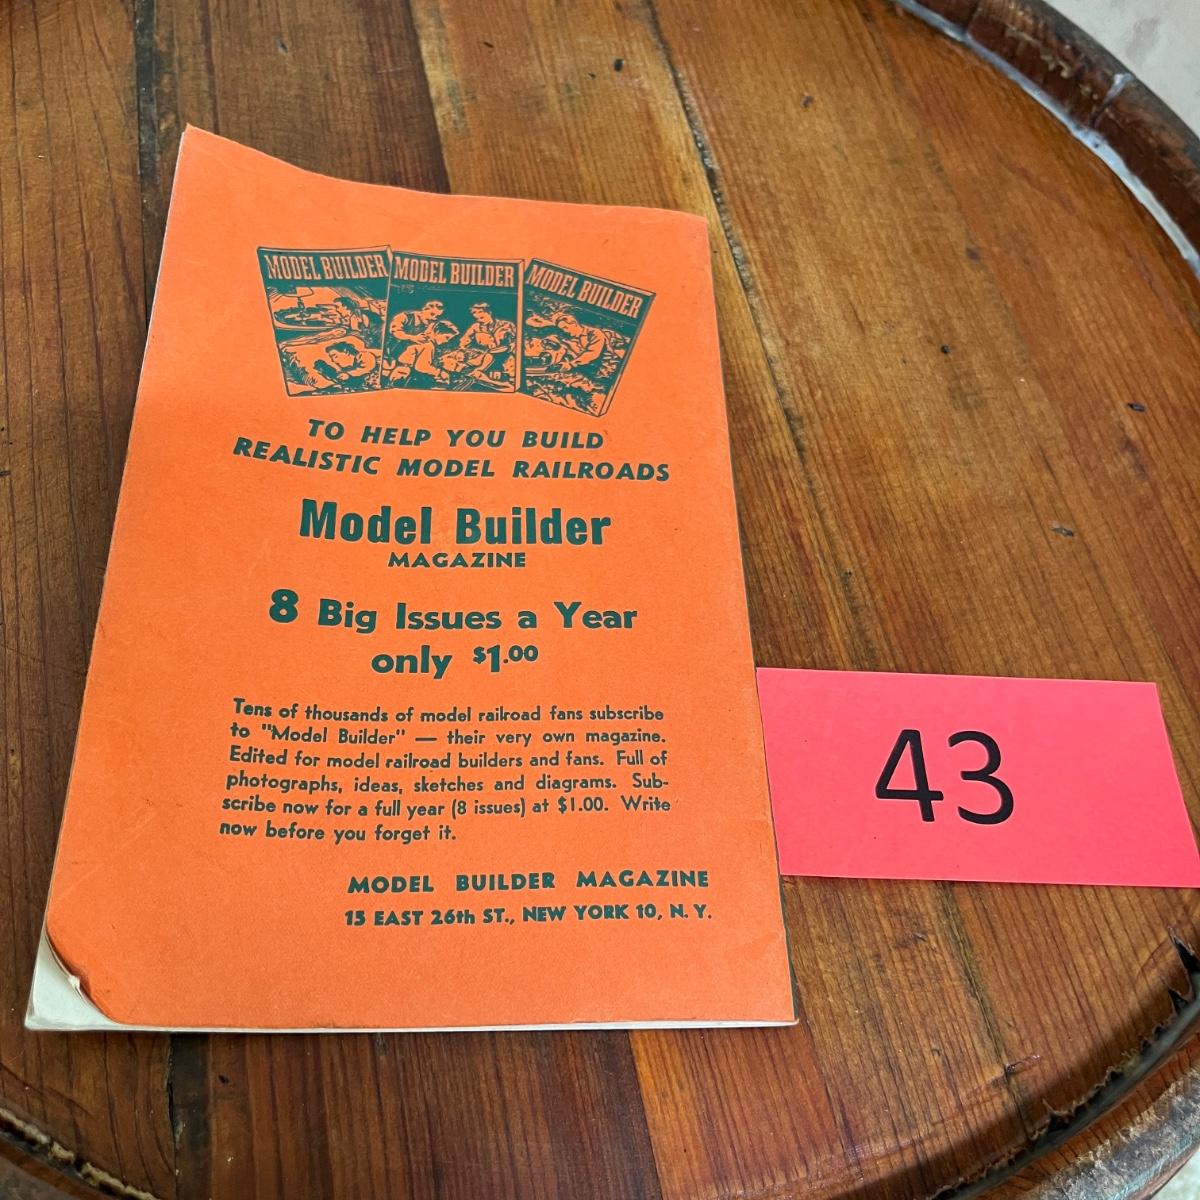 MODEL BUILDER
MODEL BUILDER
MODEL BUILDER
TO HELP YOU BUILD
REALISTIC MODEL RAILROADS
Model Builder
MAGAZINE
8 Big Issues a Year
only $1.00
Tens of thousands of model railroad fans subscribe
to "Model Builder" — their very own magazine.
Edited for model railroad builders and fans. Full of
photographs, ideas, sketches and diagrams. Sub-
scribe now for a full year (8 issues) at $1.00. Write
now before you forget it.
MODEL BUILDER MAGAZINE
15 EAST 26th ST., NEW YORK 10, N. Y.
43